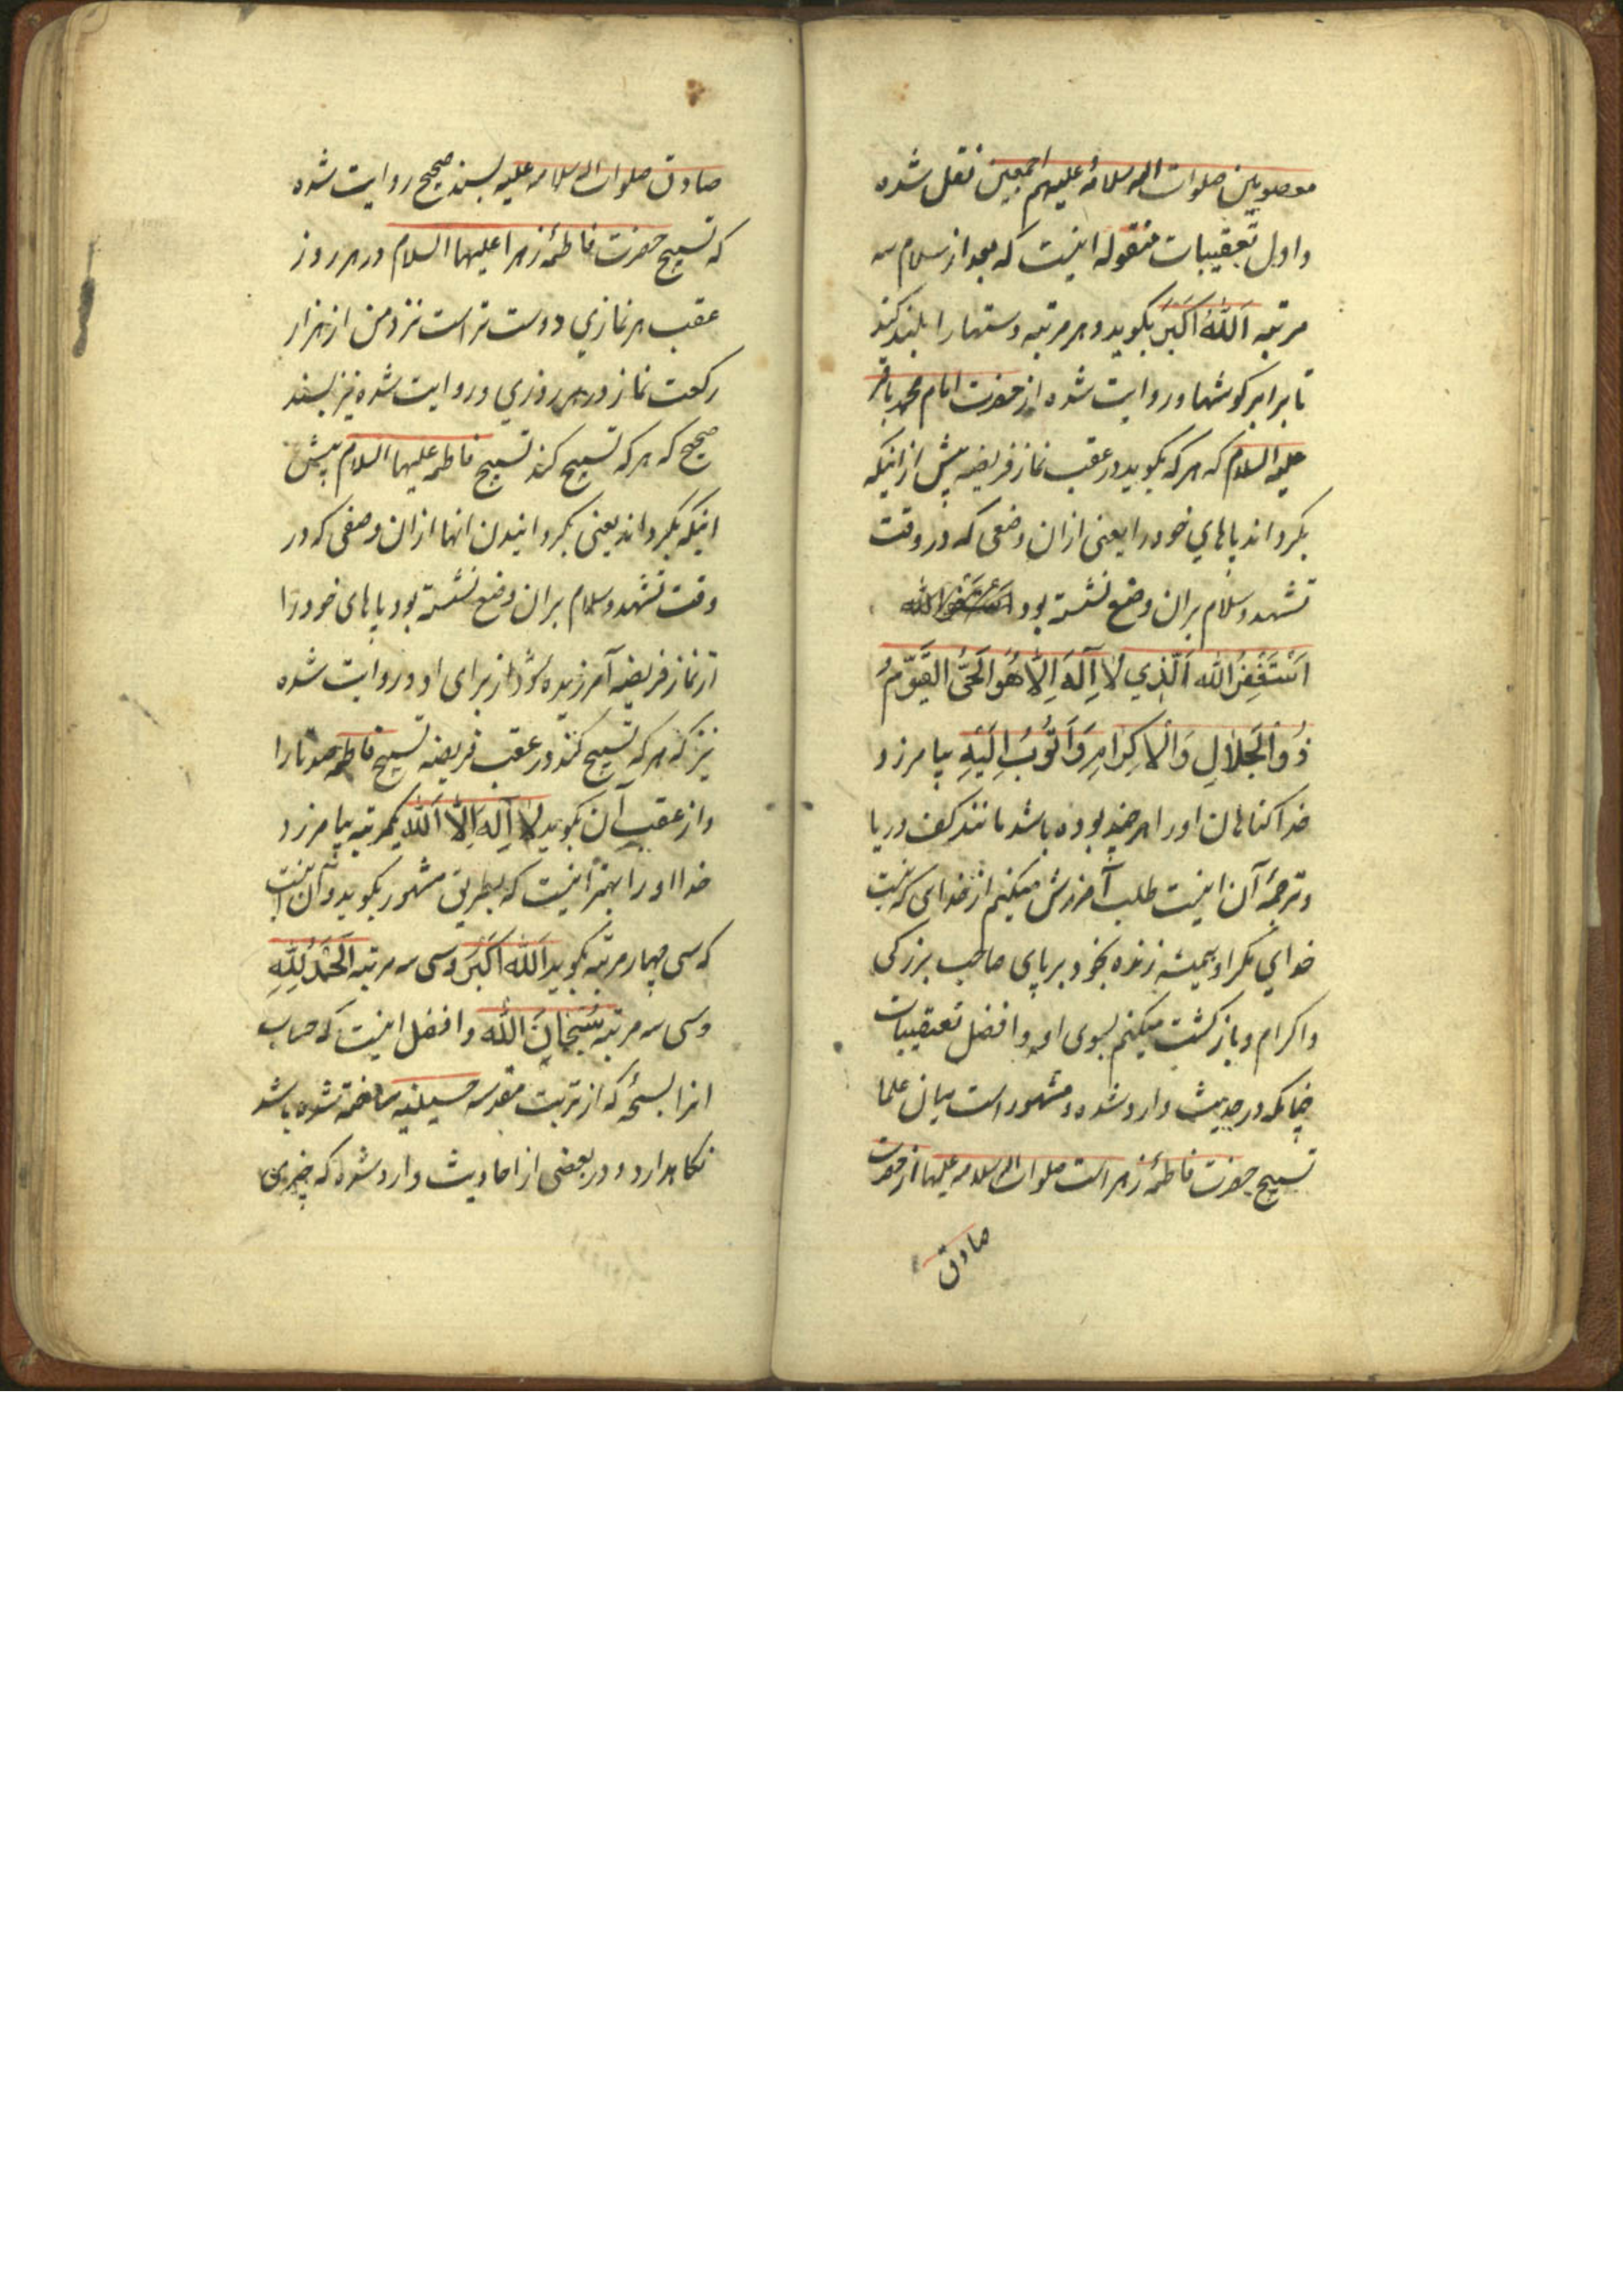 معصومین صلوات الله و سلامه علیهم اجمعین نقل شده
و اول تعقیبات منقوله اینست که بعد از سلام سه
مرتبه اَللّٰهُ اَکبَرُ بکوید و هر مرتبه دستها را بلند کند
تا برابر کوشها و روایت شده از حضرت امام محمد باقر
علیه السلام که هر که بکوید در عقب نماز فریضه پیش از انیکه
بکرداند پاهای خود را یعنی ازان وضعی که در وقت
تشهد و سلام بران وضع نشسته بود
اَسْتَغْفِرُ اللّٰه اَلَّذِي لاٰ اِلٰهَ اِلاّٰ هُوَ الْحَیُّ الْقَیّوُمُ
ذُو الْجَلاٰلِ وَالْاِکرٰامِ وَاَتوُبُ اِلَیْهِ بیامرزد
خدا کناهان او را هر چند بوده باشد مانند کف دریا
و ترجمهٔ آن اینست طلب آمرزش میکنم از خدای که نیست
خدای مکر او همیشه زنده بخود بر پای صاحب بزرکی
و اکرام و بازکشت میکنم بسوی او و افضل تعقیبات
چنانکه در حدیث وارد شده و مشهور است میان علما
تسبیح حضرت فاطمهٔ زهراست صلوات الله و سلامه علیها از حضرت
صادق
صادق صلوات الله و سلامه علیه بسند صحیح روایت شده
که تسبیح حضرت فاطمهٔ زهرا علیها السلام در هر روز
عقب هر نمازي دوست تر است نزد من از هزار
رکعت نماز در هر روزي و روایت شده نیز بسند
صحیح که هر که تسبیح کند تسبیح فاطمه علیها السلام پیش
انیکه بکرداند یعنی بکردانیدن انها ازان وضعی که در
وقت تشهد و سلام بران وضع نشسته بود پاهای خود را
از نماز فریضه آمرزیده شود از برای او و روایت شده
نیز که هر که تسبیح کند در عقب فریضه تسبیح فاطمه صد تا را
و از عقب آن بکوید لاٰ اِلٰهَ اِلاَّ اللّٰه یکمرتبه بیامرزد
خدا او را بهتر اینست که بطریق مشهور بکوید و آن اینست
که سی چهار مرتبه بکوید اَللّٰهُ اَکبَرُ و سی سه مرتبه اَلْحَمْدُ لِلّٰهِ
و سی سه مرتبه سُبْحٰانَ اللّٰه و افضل اینست که حساب
انرا بسبحه که از تربت مقدسه حسینیه ساخته شده باشد
نکاهدارد و در بعضی از احادیث وارد شده که